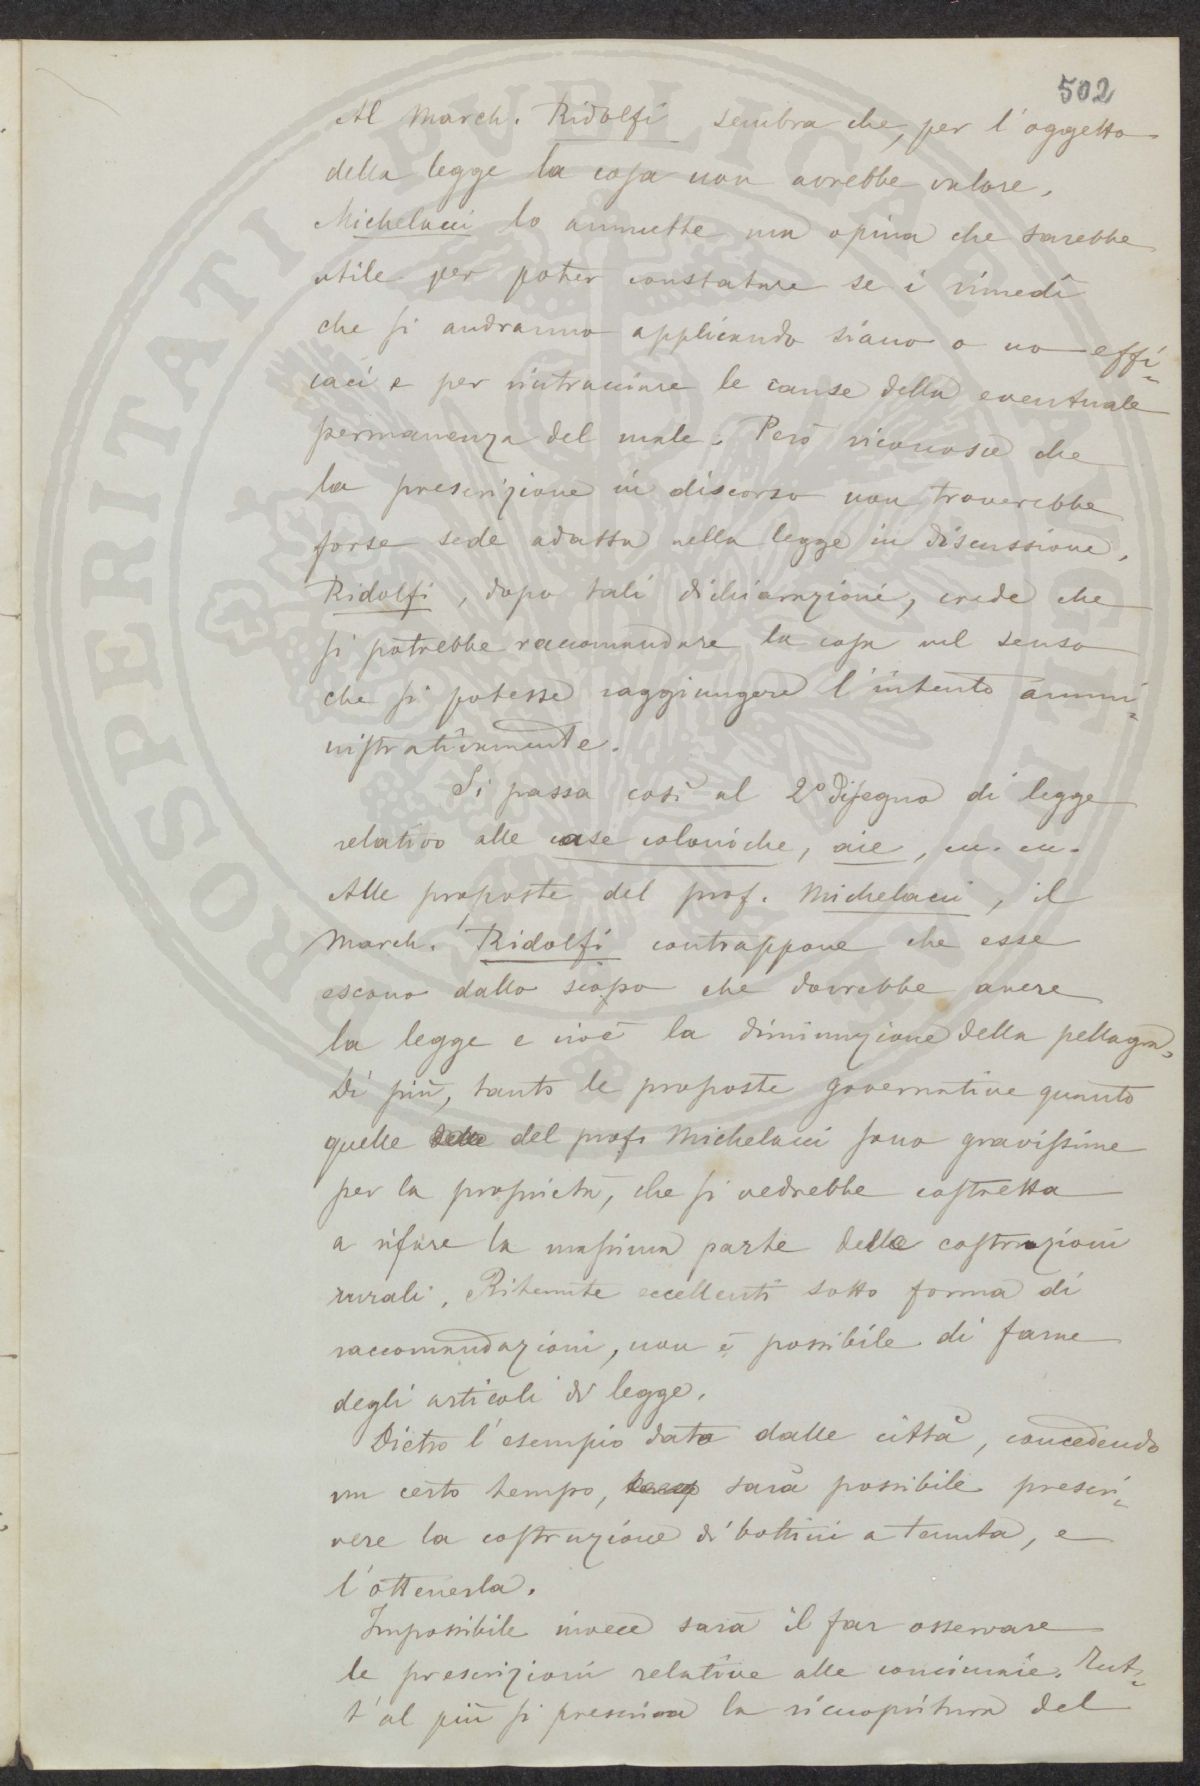 502
Al March. Ridolfi sembra che, per l'oggetto
della legge la cosa non avrebbe valore.
Michelacci lo ammette ma opina che sarebbe
utile per poter constatare se i rimedî
che si andranno applicando siano o no effi-
caci e per rintracciare le cause della eventuale
permanenza del male. Però riconosce che
la prescrizione in discorso non troverebbe
forse sede adatta nella legge in discussione.
Ridolfi, dopo tali dichiarazioni, crede che
si potrebbe raccomandare la cosa nel senso
che si potesse raggiungere l'intento ammi-
nistrativamente.
Si passa così al 2º disegno di legge
relativo alle case coloniche, aie, ecc. ecc.
Alle proposte del prof. Michelacci, il
March. Ridolfi contrappone che esse
escono dallo scopo che dovrebbe avere
la legge e cioè la diminuzione della pellagra.
Di più, tanto le proposte governative quanto
quelle del prof. Michelacci sono gravissime
per la proprietà, che si vedrebbe costretta
a rifare la massima parte delle costruzioni
rurali. Ritenute eccellenti sotto forma di
raccomandazioni, non è possibile di farne
degli articoli di legge.
Dietro l'esempio dato dalle città, concedendo
un certo tempo, sarà possibile prescri-
vere la costruzione di bottini a tenuta, e
l'ottenerla.
Impossibile invece sarà il far osservare
le prescrizioni relative alle concimaie. Tut-
t'al più si prescriva la ricuopritura del
PROSPERITATI PVBLICAE AVGENDAE